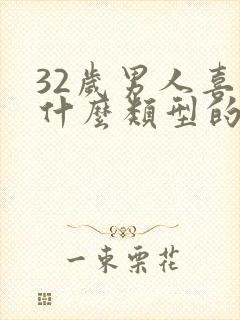 32歲男人喜
什麼類型的
一束栗花